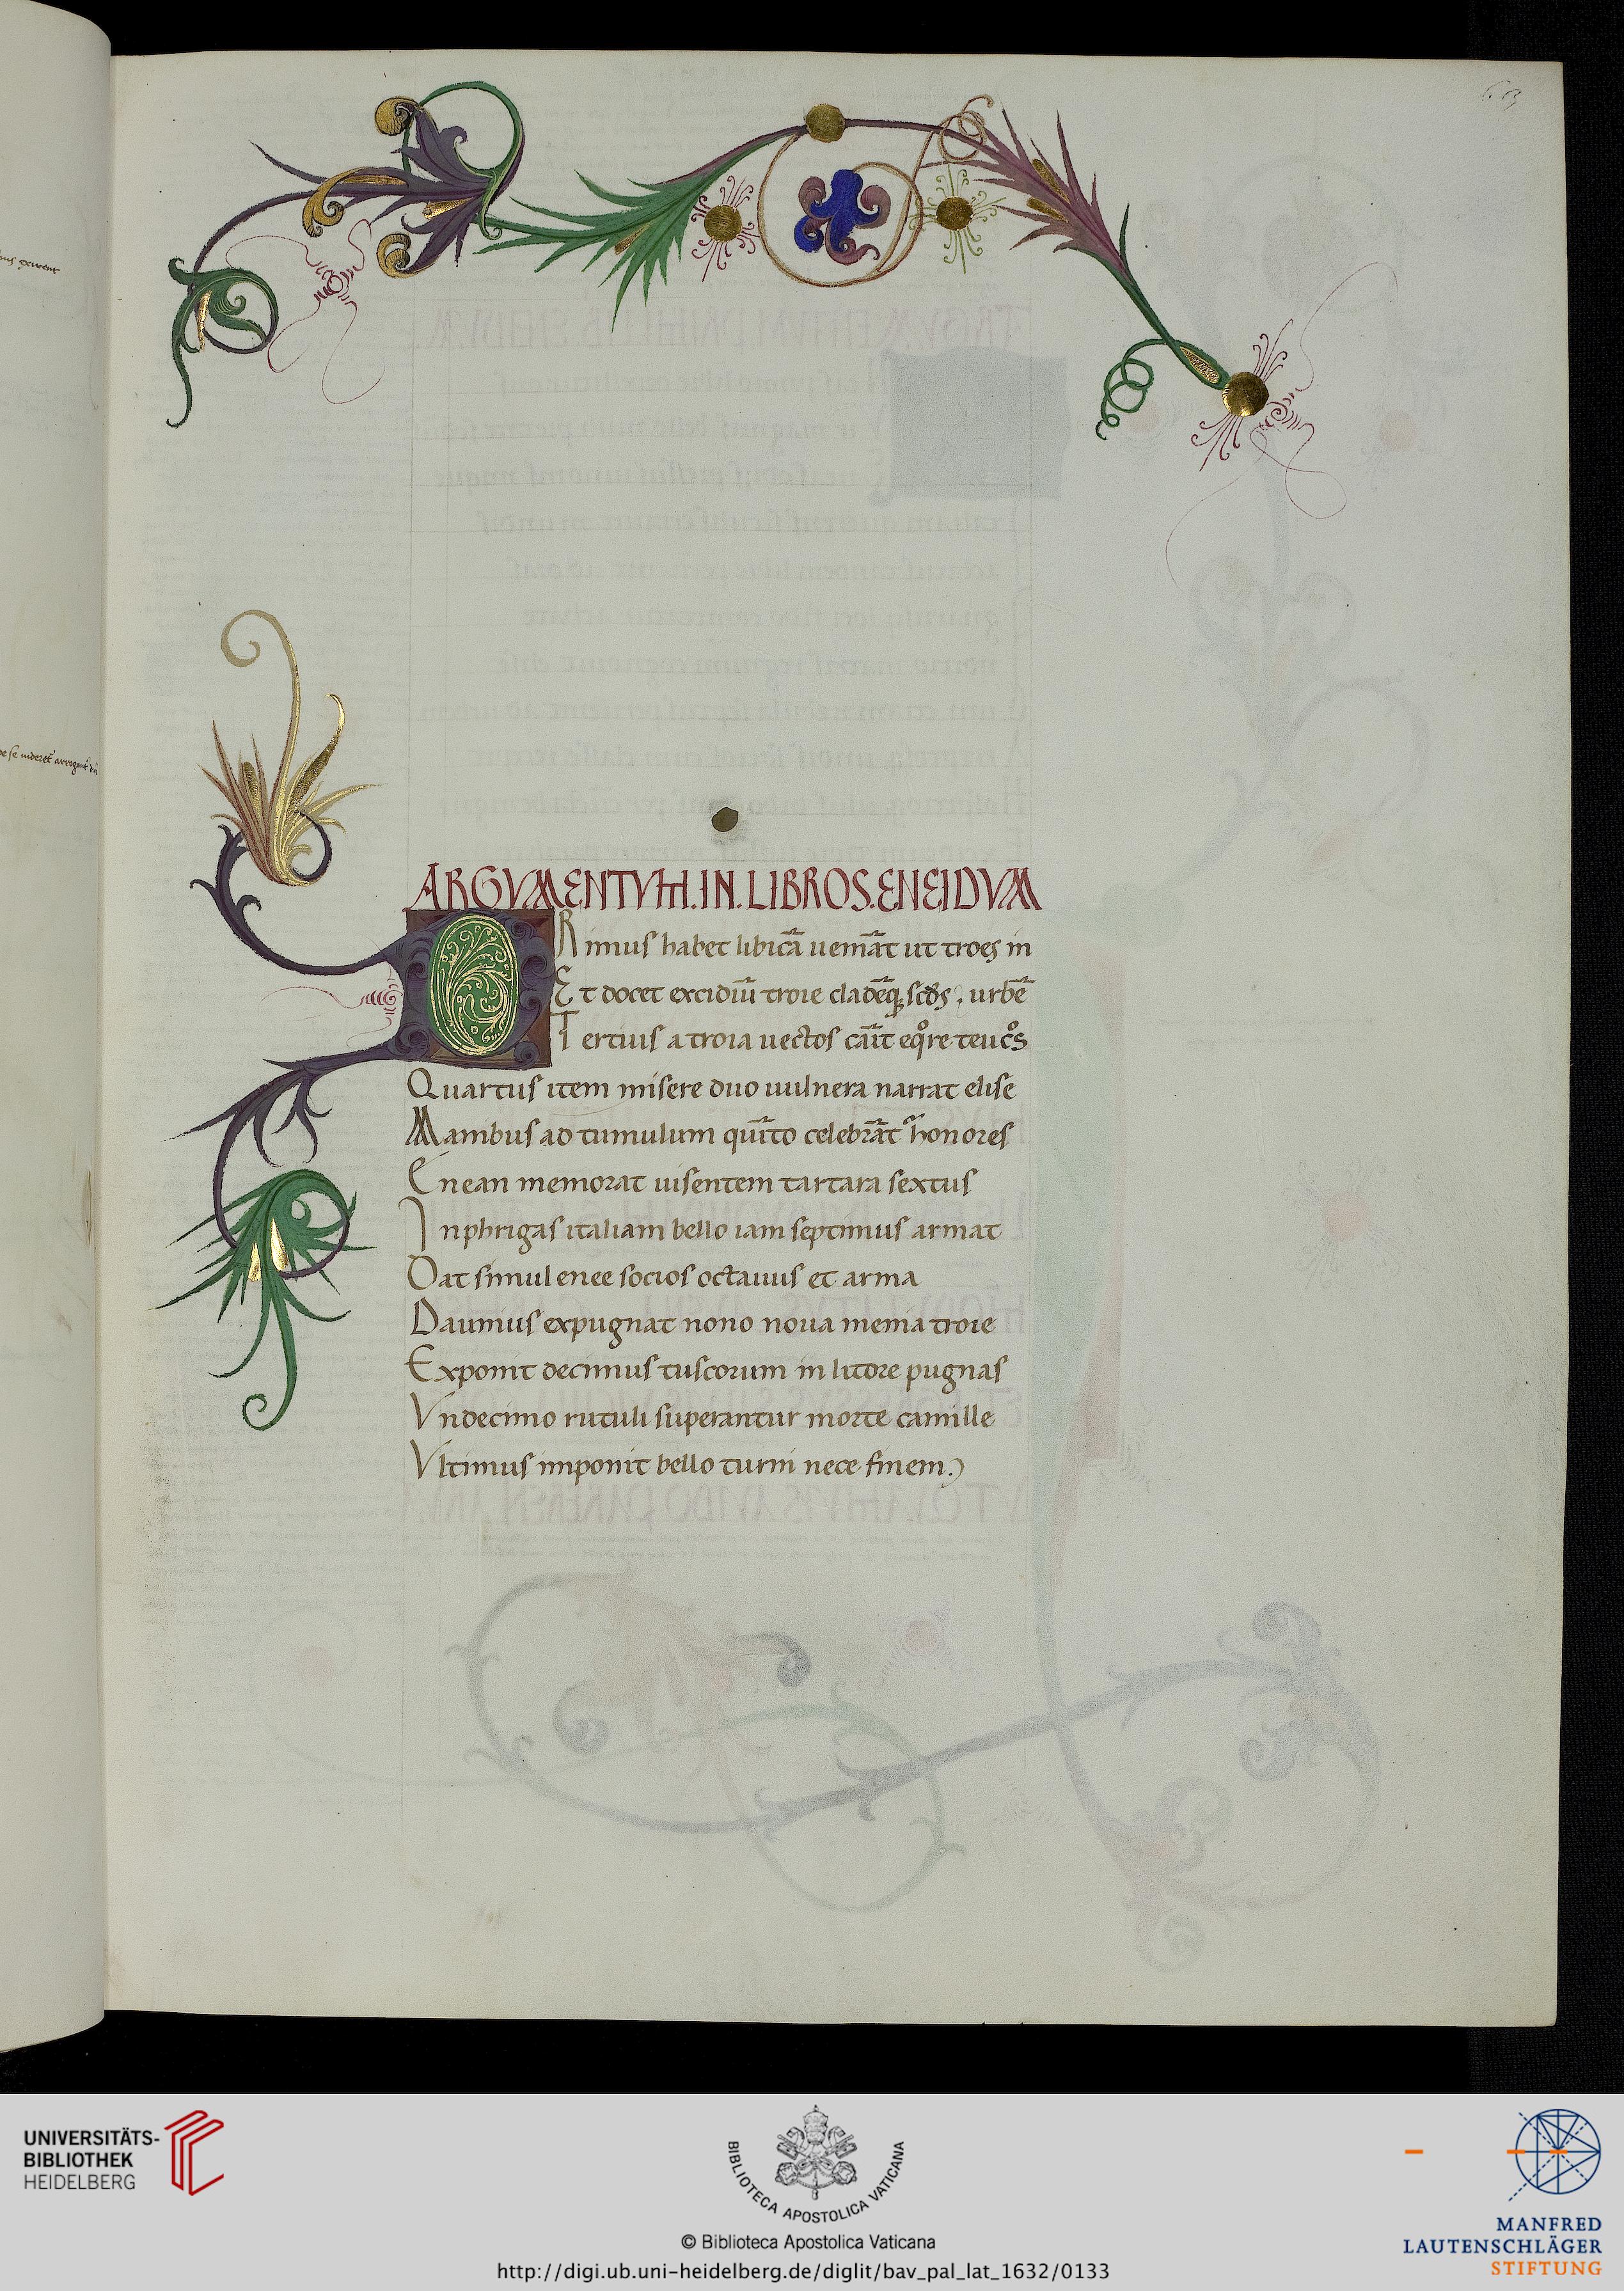 63
ARGVMENTVM.IN.LIBROS.ENEIDVM
PRimus habet libicā ueniāt ut troes in
Et docet excidiū troie cladēq; scds, urbē
Tertius a troia uectos cāit eqͦre teucͦs
Quartus item misere duo uulnera narrat elise
Manibus ad tumulum quīto celebrāt̄ honores
Enean memorat uisentem tartara sextus
In phrigas italiam bello iam septimus armat
Dat simul enee socios octauus et arma
Daunius expugnat nono noua menia troie
Exponit decimus tuscorum in litore pugnas
Vndecimo rutuli superantur morte camille
Vltimus imponit bello turni nece finem.
UNIVERSITÄTS-
BIBLIOTHEK
HEIDELBERG
BIBLIOTECA APOSTOLICA VATICANA
© Biblioteca Apostolica Vaticana
http://digi.ub.uni-heidelberg.de/diglit/bav_pal_lat_1632/0133
MANFRED
LAUTENSCHLÄGER
STIFTUNG